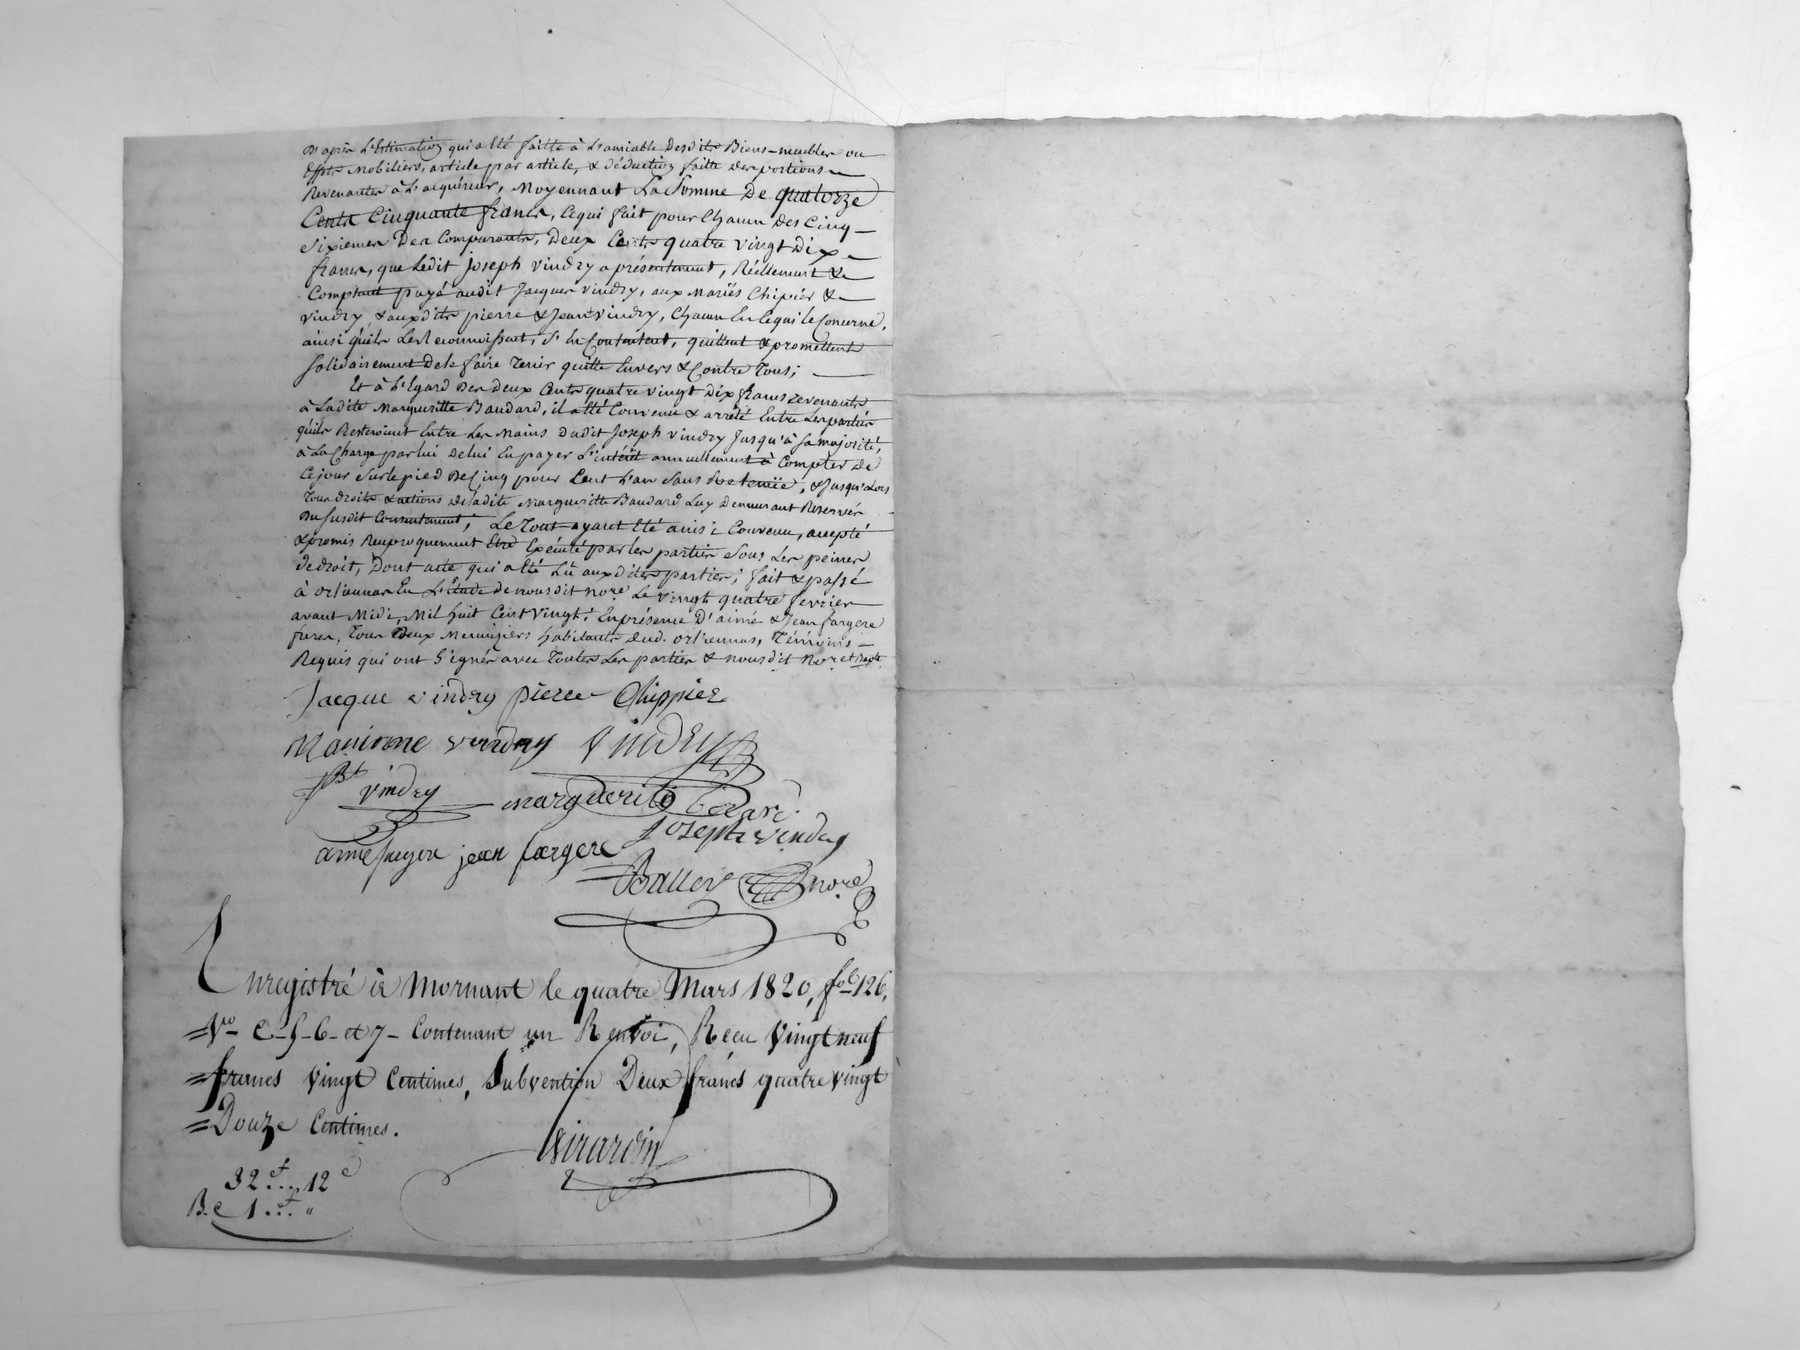 D'après L'Estimation qui a été faitte à L'amiable Desdits Biens-meubles ou
Effets Mobiliers, article par article, & déduction faitte des portions
Revenantes à L'acquéreur, Moyennant La Somme De quatorze
Cents Cinquante francs, Cequi fait pour Chacun Des Cinq
Sixiemes Des Comparants, Deux Cents quatre vingt Dix
francs, que Ledit joseph vindry a présentement, Réellement &
Comptant payé audit Jacques vindry, aux Mariés Chipier &
vindry, & auxdits pierre & Jean vindry, Chacun En Cequi le Concerne,
ainsi qu'ils Le Reconnoissent, S'en Contentent, quittent & promettent
Solidairement De le faire Tenir quitte Envers & Contre Tous;
Et à L'Egard Des deux Cents quatre vingt Dix francs revenants
à Ladite Margueritte Baudard, il a été Convenu & arrêté Entre Les parties
qu'ils Resteroient Entre Les Mains dudit Joseph vindry Jusqu'à sa majorité,
à La Charge par lui de lui En payer L'intérêt annuellement à Compter de
Ce jour Sur le pied De Cinq pour Cent L'an Sans Retenüe, & Jusqu'alors
Tous droits & actions de ladite Margueritte Baudard Luy Demeurant Reservés
Du susdit Consentement; Le Tout ayant Eté ainsi Convenu, accepté
& promis Reciproquement Etre Exécuté par les parties Sous Les peines
de droit, Dont acte qui a Eté Lû auxdites parties; fait & passé
à orliennas En L'Etude de nousdit nore Le vingt quatre fevrier
avant Midi, Mil huit Cent vingt; En présence D'aimé & Jean fargere
freres, Tous Deux Menuisiers habitants dud. orliennas, Témoins
Requis qui ont Signés avec Toutes Les parties & nousdit Nore et
Jacque vindry pierre Chippier
vindry vindry
vindry marguerite bodard
Joseph vindry
aime fargere jean fargere
nore
Enregistré à Mornant le quatre Mars 1820, fo 126,
Vo C. 5-6-et 7- Contenant un Renvoi, Recu Vingt neuf
francs Vingt Centimes, Subvention Deux francs quatre vingt
Douze Centimes.
Girardin
32 f... 12 c
B.e 1 f... "